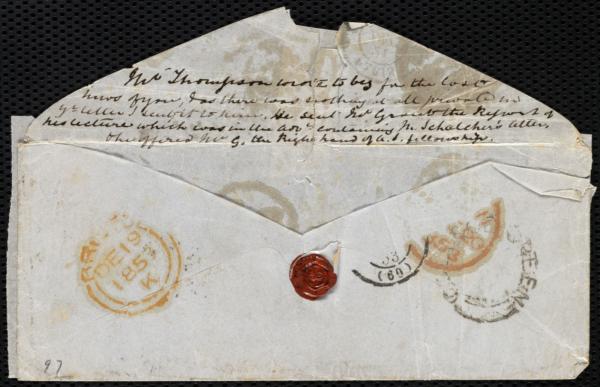 Mr Thompson wrote to beg for the last
news of you, & as there was nothing at all private in
yr letter I sent it to him. He sent Mr G. the Report of
his lecture which was in the Advr containing M. Schœlcher's letter,
& he offered Mr G. the Right hand of A.S. fellowship.
DE 19
185
K
(60)
97